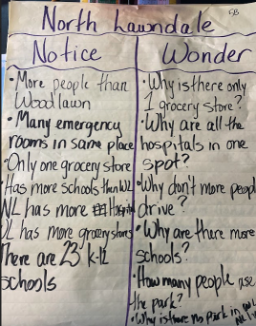 FB
North Lawndale
Notice
Wonder
•More people than
Woodlawn
•Many emergency
rooms in same place
•Only one grocery store
Has more schools then WL
NL has more
WL has more grocery stores
There are 23 k-12
schools
•Why is there only
1 grocery store?
•Why are all the
hospitals in one
spot?
•Why don't more people
drive?
•Why are there more
schools?
•How many people use
the park?
•Why is there no park in